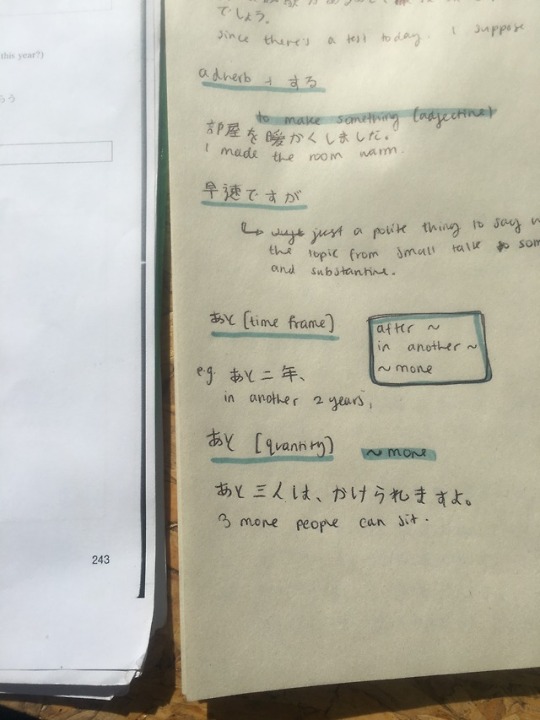 this year?)
らう
243
でしょう。
since there's a test today. I suppose
adverb + する
to make something (adjective)
部屋を暖かくしました。
I made the room warm.
早速ですが
↳ just a polite thing to say
the topic from small talk to som
and substantive.
あと [time frame]
after ~
in another ~
~ more
e.g あと二年、
in another 2 years,
あと [quantity] ~ more
あと三人は、かけられますよ。
3 more people can sit.